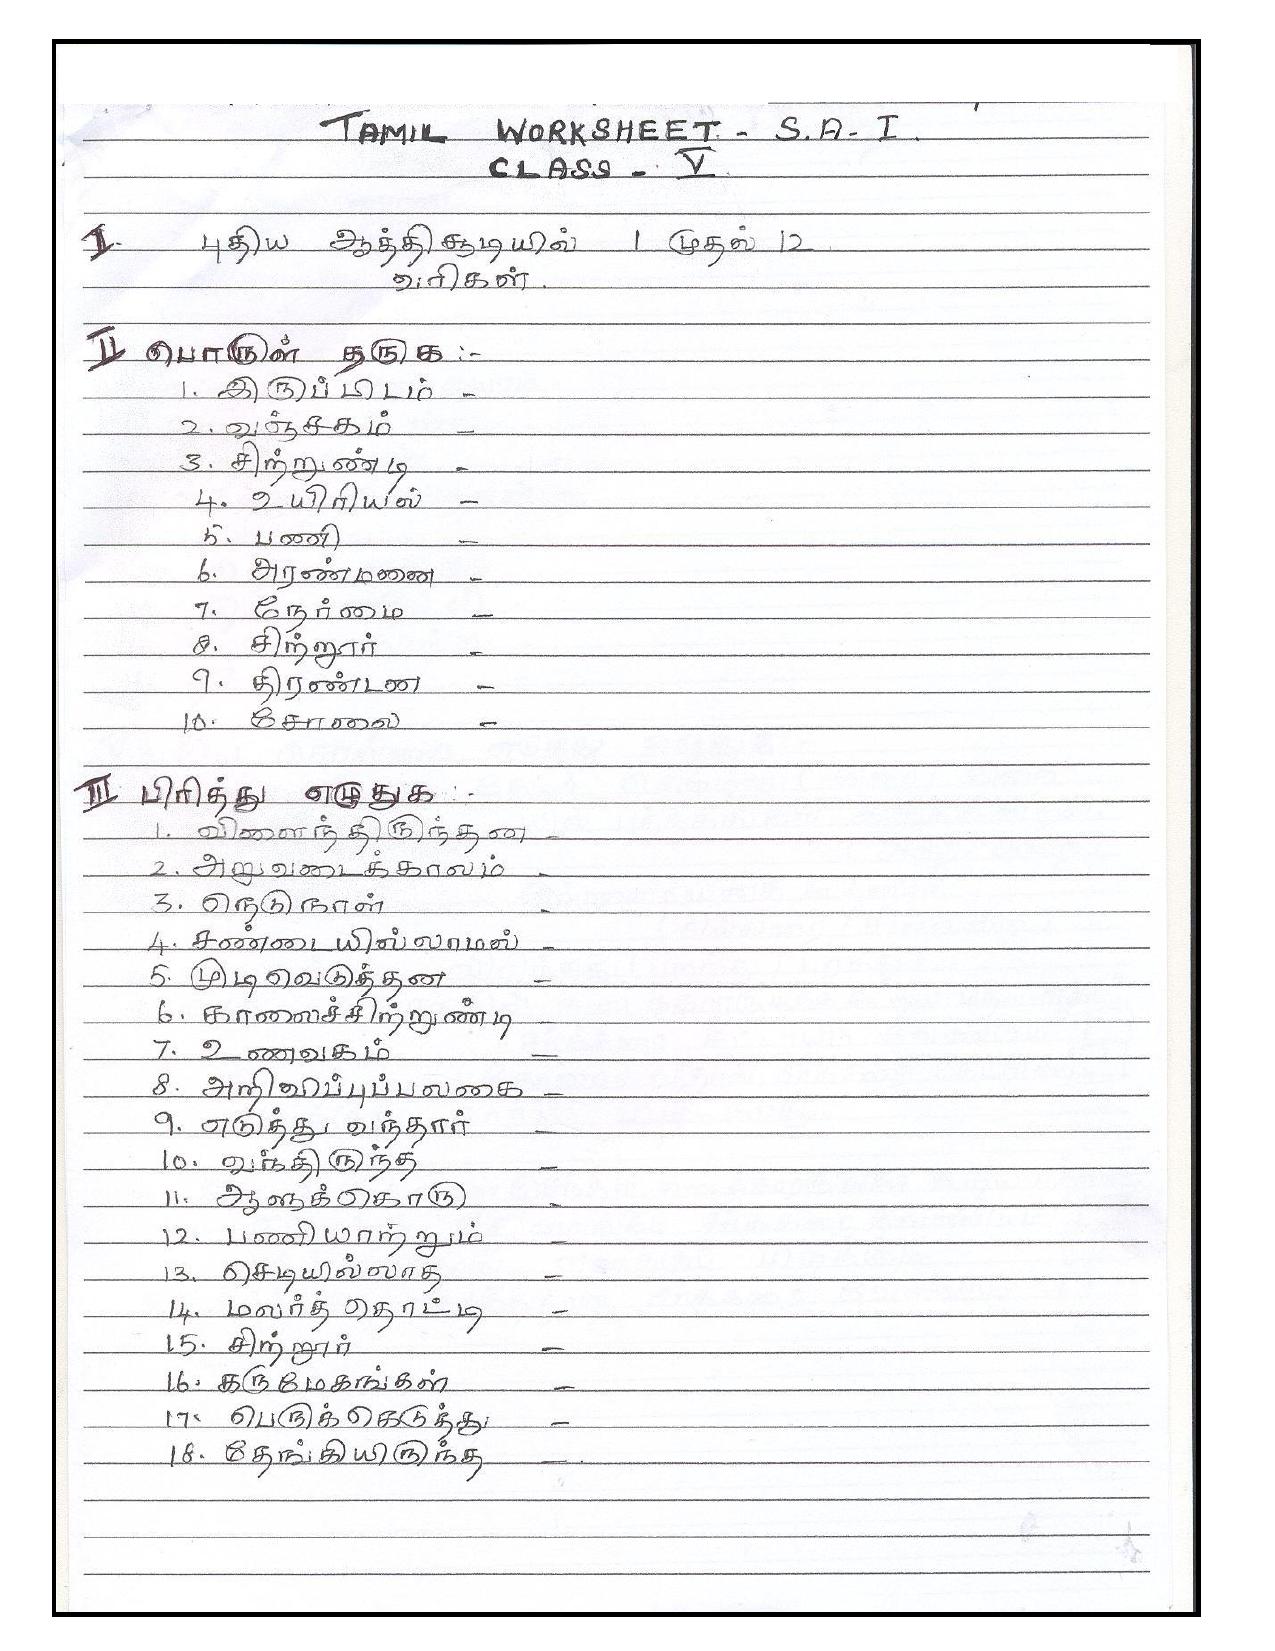 TAMIL WORKSHEET - S.A-I.
CLASS - V
I. புதிய ஆத்திசூடியில் 1 முதல் 12
வரிகள்.
II பொருள் தருக :-
1. இருப்பிடம் -
2. வஞ்சகம் -
3. சிற்றுண்டி -
4. உயிரியல் -
5. பணி -
6. அரண்மனை -
7. நேர்மை -
8. சிற்றூர் -
9. திரண்டன -
10. சோலை -
III பிரித்து எழுதுக :-
1. விளைந்திருந்தன -
2. அறுவடைக்காலம் -
3. நெடுநாள் -
4. சண்டையில்லாமல் -
5. முடிவெடுத்தன -
6. காலைச்சிற்றுண்டி
7. உணவகம் -
8. அறிவிப்புப்பலகை -
9. எடுத்து வந்தார் -
10. வந்திருந்த -
11. ஆளுக்கொரு -
12. பணியாற்றும் -
13. செடியில்லாத -
14. மலர்த் தொட்டி -
15. சிற்றூர் -
16. கருமேகங்கள் -
17. பெருக்கெடுத்து -
18. தேங்கியிருந்த -